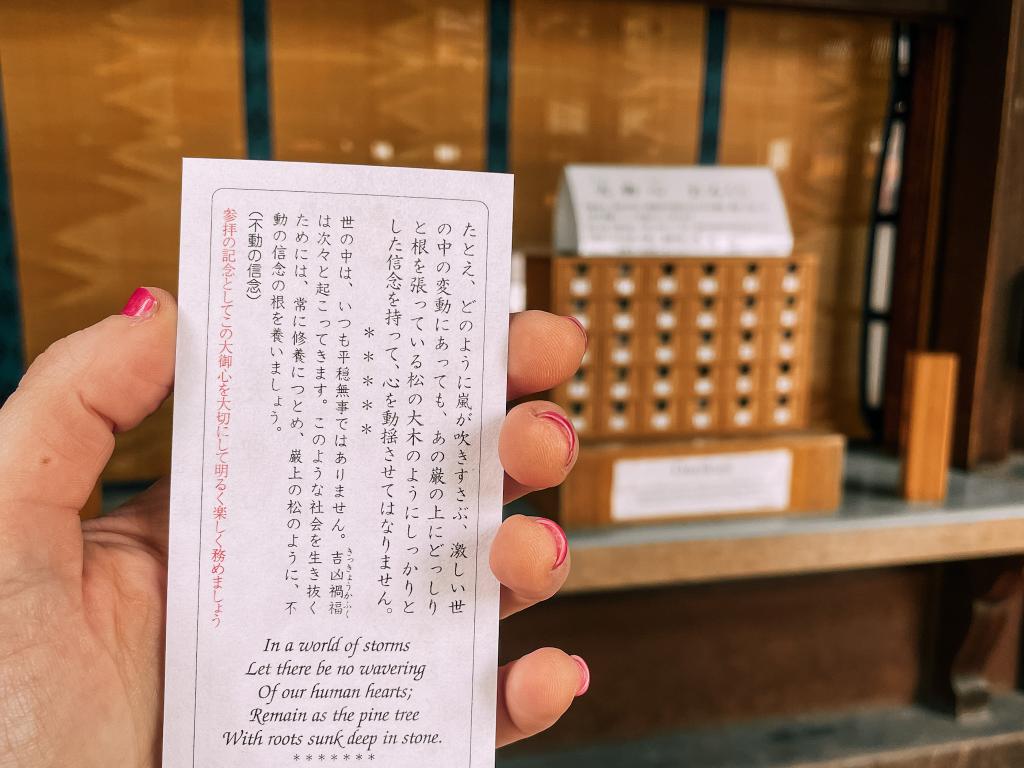 たとえ、どのように嵐が吹きすさぶ、激しい世
の中の変動にあっても、あの巌の上にどっしり
と根を張っている松の大木のようにしっかりと
した信念を持って、心を動揺させてはなりません。
＊＊＊＊＊
世の中は、いつも平穏無事ではありません。吉凶禍福
きっきょうかふく
は次々と起こってきます。このような社会を生き抜く
ためには、常に修養につとめ、巌上の松のように、不
動の信念の根を養いましょう。
（不動の信念）
参拝の記念としてこの大御心を大切にして明るく楽しく務めましょう
In a world of storms
Let there be no wavering
Of our human hearts;
Remain as the pine tree
With roots sunk deep in stone.
*******